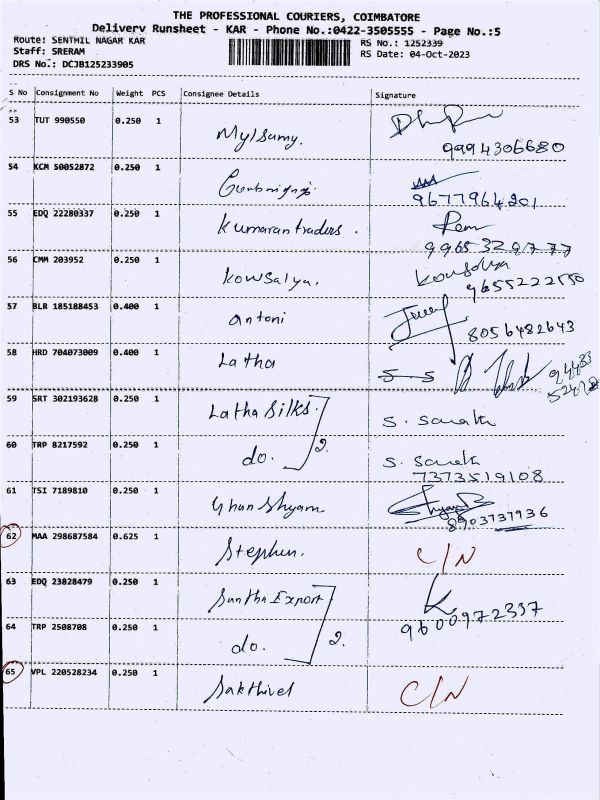 THE PROFESSIONAL COURIERS, COIMBATORE
Delivery Runsheet - KAR - Phone No.:0422-3505555 - Page No.:5
Route: SENTHIL NAGAR KAR
RS No.: 1252339
Staff: SRERAM
RS Date: 04-Oct-2023
DRS No.: DCJB125233905
S No Consignment No Weight PCS Consignee Details Signature
53 TUT 990550 0.250 1 Mylsamy. 9994306680
54 KCM 50052872 0.250 1 9677964201
55 EDQ 22280337 0.250 1 Kumaran traders. Ram
9965329777
56 CMM 203952 0.250 1 Kowsalya. Kowsalya
9655222550
57 BLR 185188453 0.400 1 antoni 8056482643
58 HRD 704073009 0.400 1 Latha
59 SRT 302193628 0.250 1 Latha Silks. S. Sarath
60 TRP 8217592 0.250 1 do. 2. S. Sarath
7373519108
61 TSI 7189810 0.250 1 Ghanshyam 8903737936
62 MAA 298687584 0.625 1 Stephen. C/N
63 EDQ 23828479 0.250 1 Santha Export K
9600972337
64 TRP 2508708 0.250 1 do. 2.
65 VPL 220528234 0.250 1 Sakthivel C/N